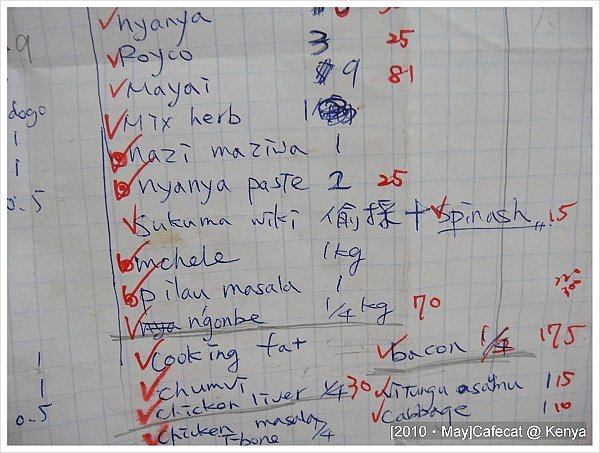 nyanya
Royco 3 25
Mayai 9 81
Mix herb 1
dogo
nazi maziwa 1
1
nyanya paste 1 25
1
sukuma wiki 偷採 + spinash 15
0.5
mchele 1kg
pilau masala 1
n'gonbe 1/4 kg 70
cooking fat
bacon 175
1
chumvi
1
chicken liver 1/4 30
vitungu asamu 1 15
0.5
cabbage 1 10
chicken masala
t-bone 1/4
[2010・May]Cafecat @ Kenya